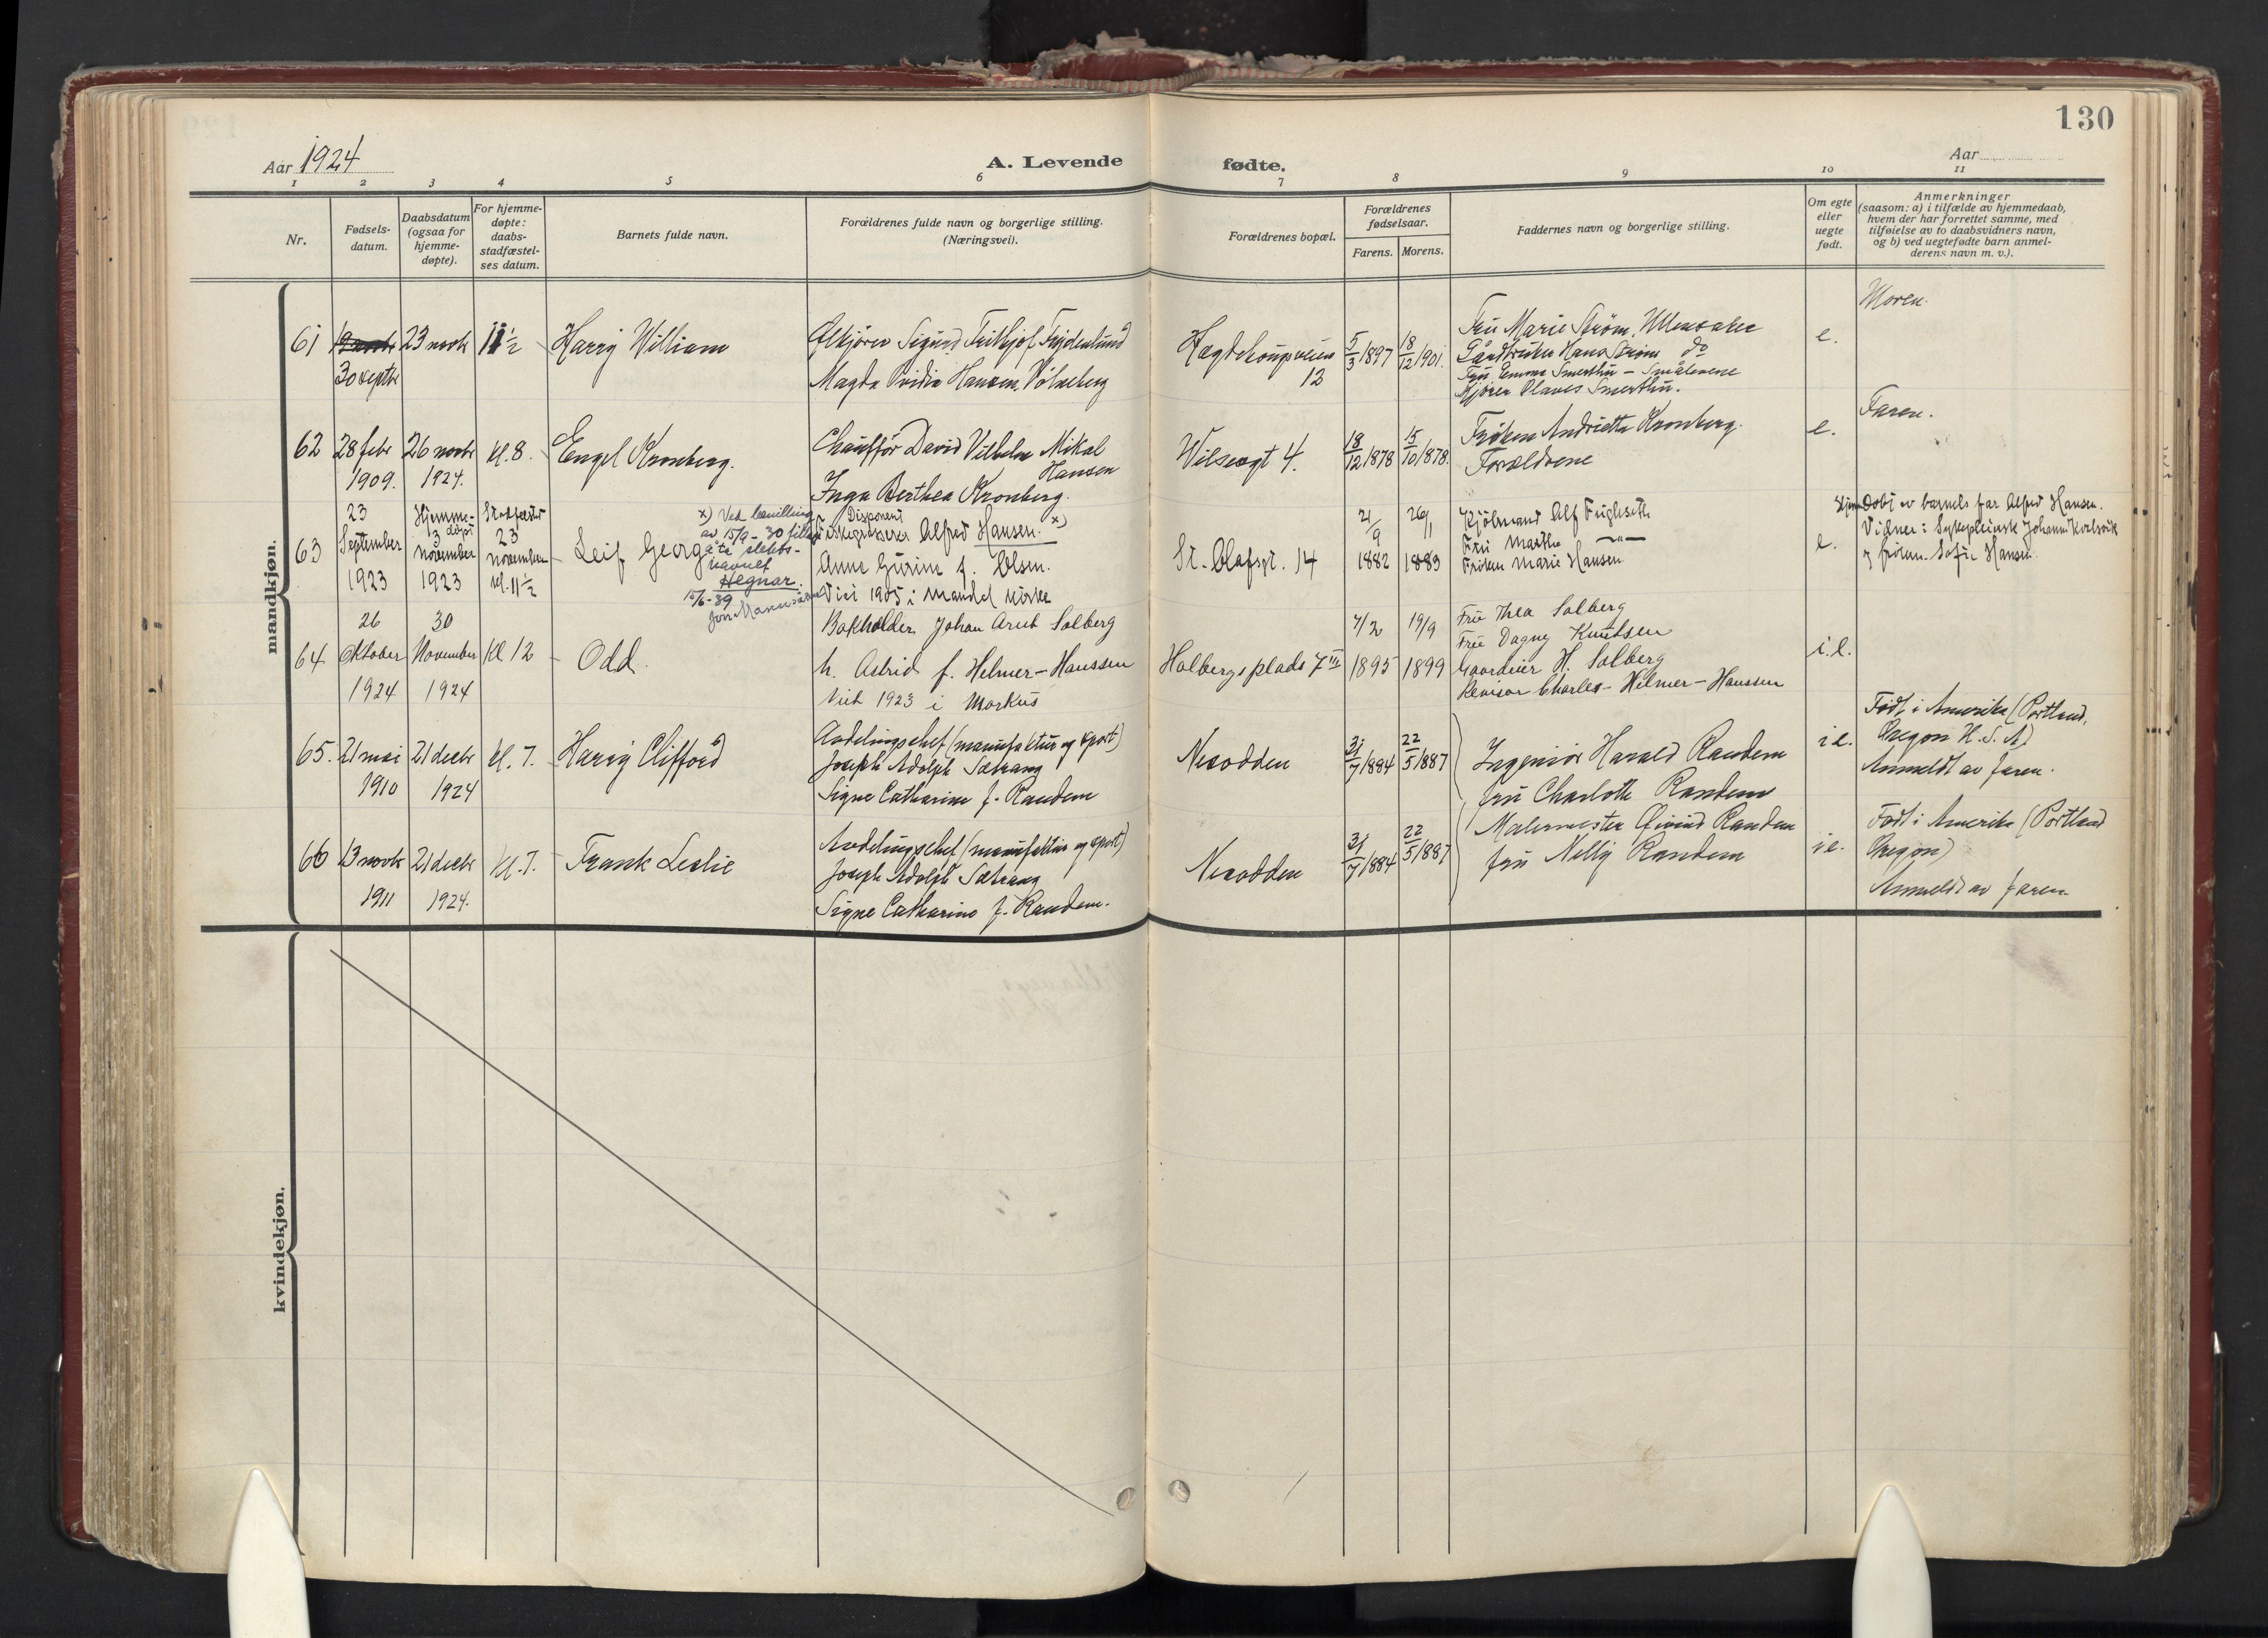 130
Aar 1924
A. Levende fødte.
Aar
1 2 3 4 5 6 7 8 9 10 11
Nr.
Fødsels-
datum.
Daabsdatum
(ogsaa for
hjemme-
døpte).
For hjemme-
døpte:
daabs-
stadfæstel-
ses datum.
Barnets fulde navn.
Forældrenes fulde navn og borgerlige stilling.
(Næringsvei).
Forældrenes bopæl.
Forældrenes
fødselsaar.
Farens. Morens.
Faddernes navn og borgerlige stilling.
Om egte
eller
uegte
født.
Anmerkninger
(saasom: a) i tilfælde av hjemmedaab,
hvem der har forrettet samme, med
tilføielse av to daabsvidners navn,
og b) ved uegtefødte barn anmel-
derens navn m. v.).
mandkjøn.
61
30 septbr
23 novbr
11 1/2
Harry William
Ølkjører Sigurd Frithjof Frydenlund
Magda Ovidia Hansen,
Hægdehougsveien
12
5/3 1897
18/12 1901.
Fru Marie Strøm, Ullensaker
Gårdbruker Hans Strøm do
Fru Emma Smerthu - Smålenene
Kjører Olaves Smerthu.
e.
Moren.
62
28 febr
1909.
26 novbr
1924.
kl. 8.
Engel Kronberg.
Chauffør David Vilhelm Mikal
Hansen
Inga Berthea Kronberg.
Wilsesgt 4.
18/12 1878
15/10 1878.
Frøken Andrietta Kronberg.
Forældrene
e.
Faren.
63
23
September
1923
Hjemme-
døpt
3
november
1923
Stadfæstet
23
november
kl. 11 1/2
Leif Georg
x) Ved bevilling
av 15/9 - 30 tillatt
å ta slekts-
navnet
Hegnar.
15/6-39
Disponent
Fiskegrosserer Alfred Hansen. x)
Anna Gurine f. Olsen.
Viet 1905 i Mandal kirke
St. Olafsgt. 14
21/9
1882
26/11
1883
Kjølmand Alf Fuglesett
Fru Martha -"-
Frøken Marie Hansen
e.
Hjemmedøbt av barnets far Alfred Hansen.
Vidner: Sykepleierske Johanne
og frøken Sofie Hansen.
64
26
Oktober
1924
30
November
1924
Kl 12
Odd.
Bokholder Johan Arnt Solberg
h. Astrid f. Helmer-Hanssen
Viet 1923 i Markus
Holbergsplads 7 III
7/2
1895
19/9
1899
Fru Thea Solberg
Frue Dagny Knutsen
Gaardeier H. Solberg
Revisor Charles Helmer-Hanssen
i.e.
65.
21 mai
1910
21 decbr
1924
kl. 7.
Harry Clifford
Avdelingschef (manufaktur og sport)
Joseph Adolph Sætrang
Signe Catharina f. Randem
Nesodden
31/7 1884
22/5 1887
Ingeniør Harald Randem
fru Charlotte Randem
i e.
Født i Amerika (Portland,
Oregon U.S.A)
Anmeldt av faren.
66
13 novbr
1911
21 decbr
1924.
Kl. 7.
Frank Leslie
Avdelingschef (manufaktur og sport)
Joseph Adolph Sætrang
Signe Catharina f. Randem.
Nesodden
31/7 1884
22/5 1887
Malermester Øivind Randem
fru Nelly Randem
i e.
Født i Amerika (Portland
Oregon)
Anmeldt av faren
kvindekjøn.